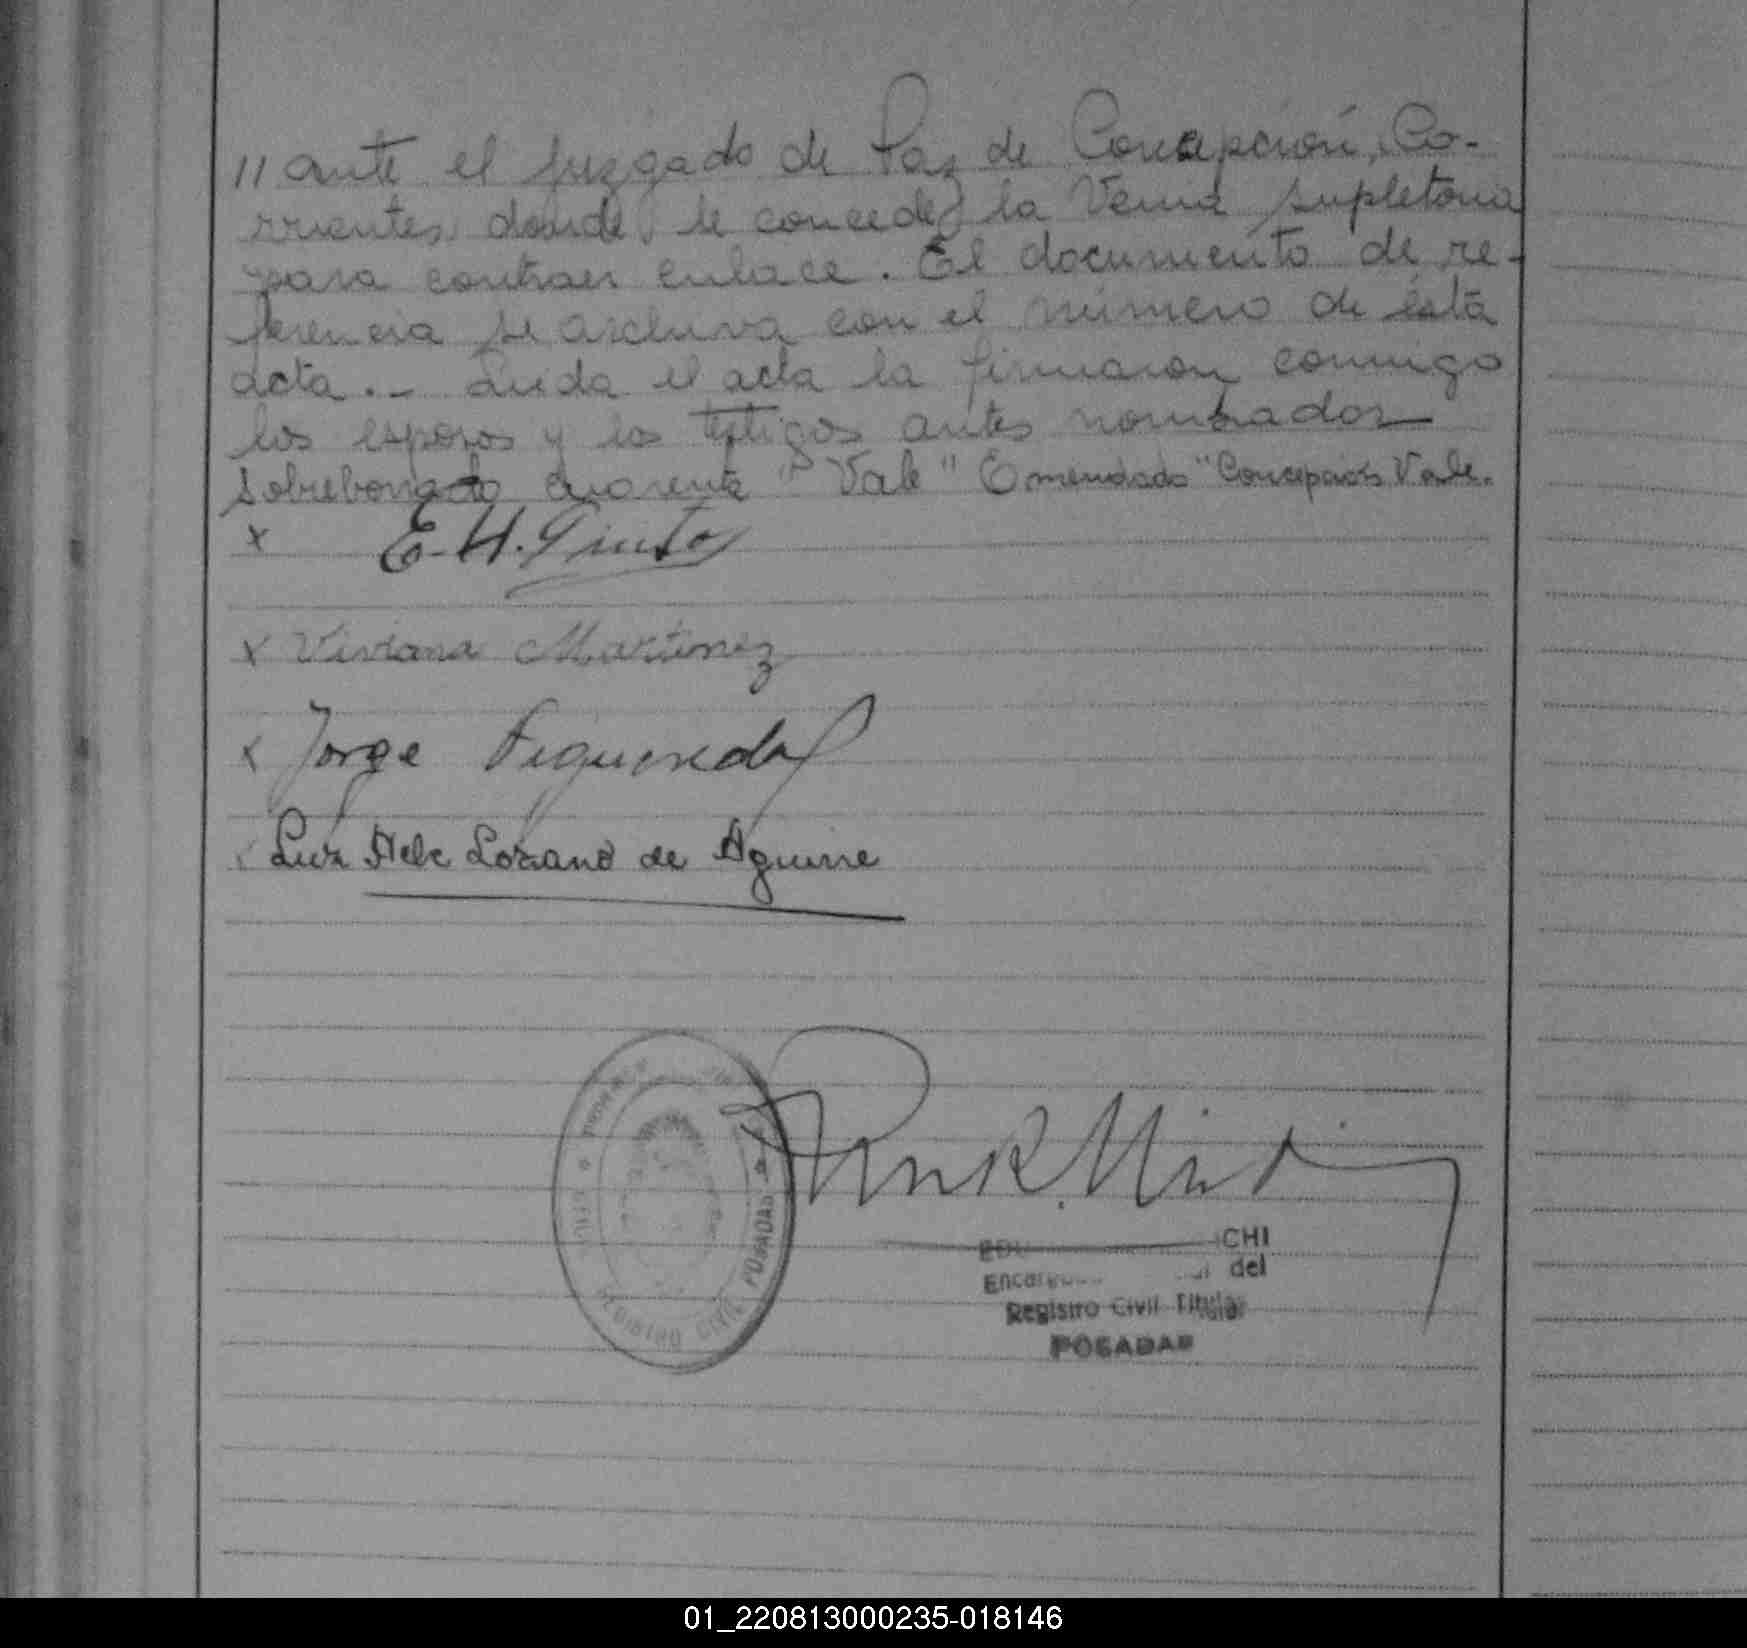 // ante el juzgado de Paz de Concepción, Co-
rrientes donde se concede la Venia supletoria
para contraer enlace. El documento de re-
ferencia se archiva con el número de ésta
acta.- Leida el acta la firmaron conmigo
los esposos y los testigos antes nombrados
Sobreborrado cuarenta "Vale" Emendado "Concepción Vale.
x E. H. Pinto
x Viviana Martinez
x Jorge Figueredo
x Luz Lozano de Aguirre
REGISTRO CIVIL POSADAS
CHI
del
Registro Civil Titular
POSADAS
01_220813000235-018146